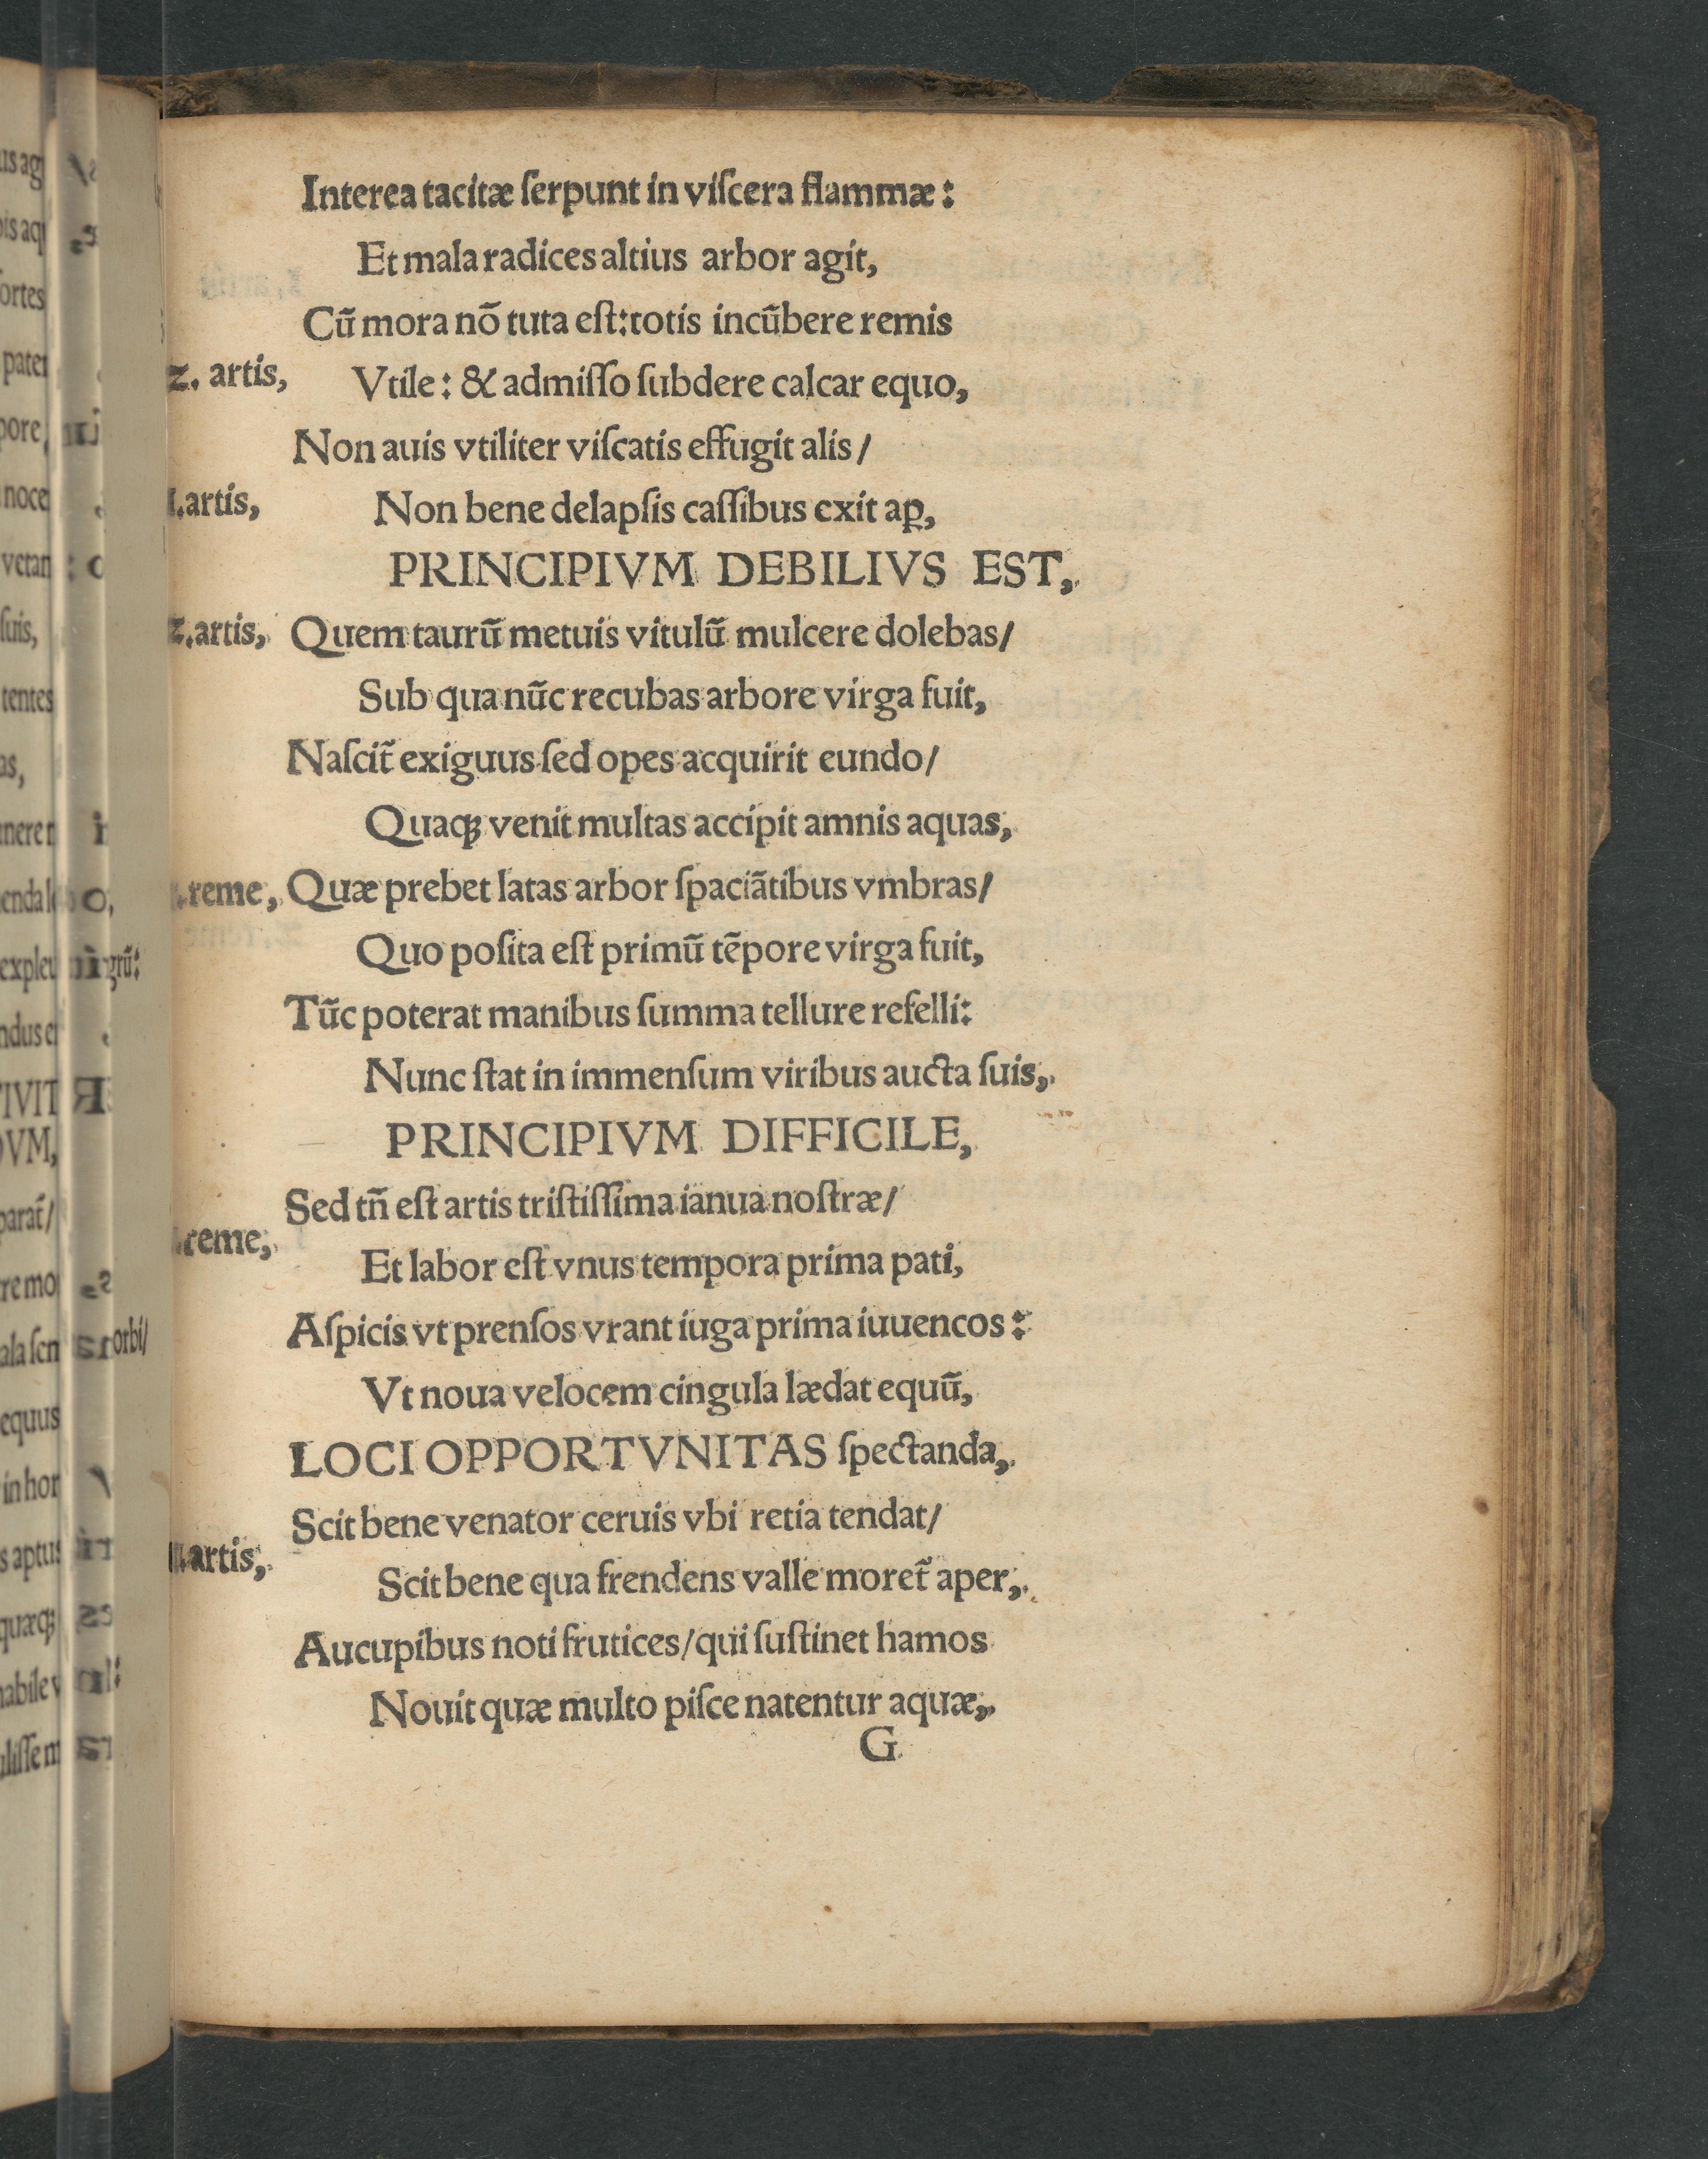 Interea tacitæ ſerpunt in viſcera flammæ:
Et mala radices altius arbor agit,
Cũ mora nõ tuta eſt: totis incũbere remis
z. artis,
Vtile: & admiſſo ſubdere calcar equo,
Non auis vtiliter viſcatis effugit alis/
I.artis,
Non bene delapſis caſſibus exit aꝑ,
PRINCIPIVM DEBILIVS EST,
z.artis,
Quem taurũ metuis vitulũ mulcere dolebas/
Sub qua nũc recubas arbore virga fuit,
Naſcit̃ exiguus ſed opes acquirit eundo/
Quaqꝫ venit multas accipit amnis aquas,
.reme,
Quæ prebet latas arbor ſpaciãtibus vmbras/
Quo poſita eſt primũ tẽpore virga fuit,
Tũc poterat manibus ſumma tellure refelli:
Nunc ſtat in immenſum viribus aucta ſuis,
PRINCIPIVM DIFFICILE,
Sed tñ eſt artis triſtiſſima ianua noſtræ/
.reme,
Et labor eſt vnus tempora prima pati,
Aſpicis vt prenſos vrant iuga prima iuuencos:
Vt noua velocem cingula lædat equũ,
LOCI OPPORTVNITAS ſpectanda,
Scit bene venator ceruis vbi retia tendat/
.artis,
Scit bene qua frendens valle moret̃ aper,
Aucupibus noti frutices/qui ſuſtinet hamos
Nouit quæ multo piſce natentur aquæ,
G